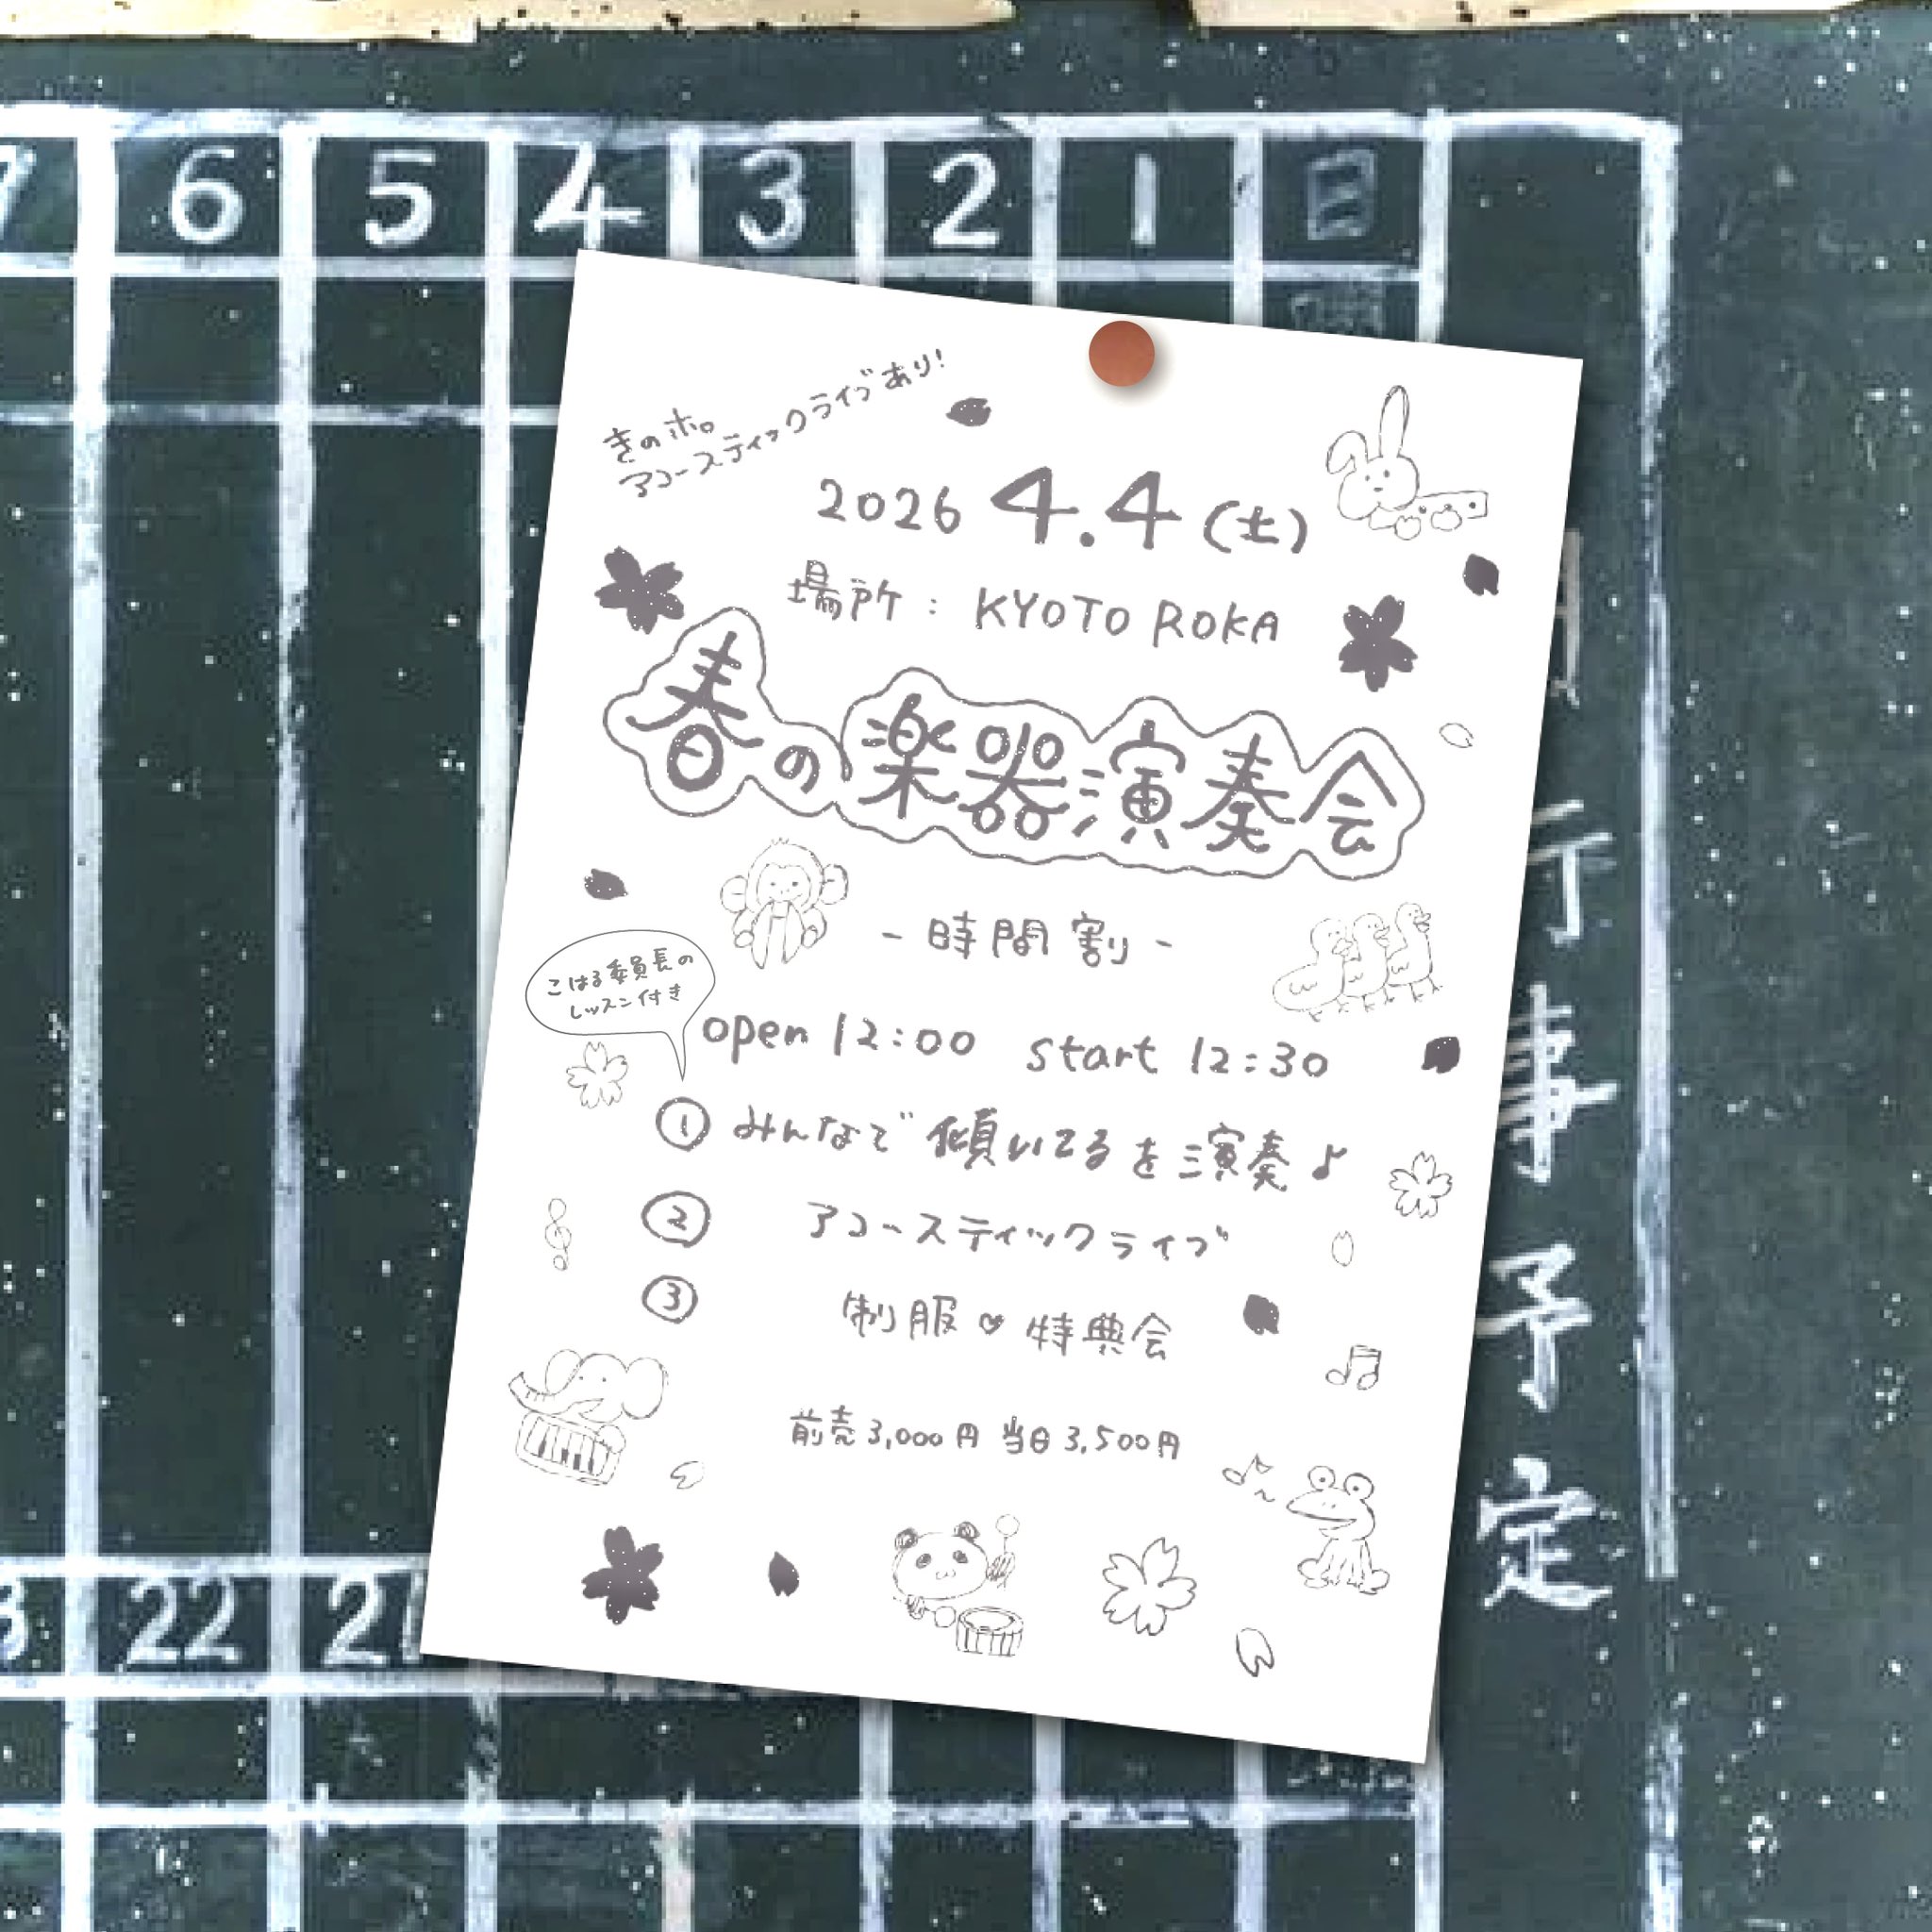 6 5 4 3 2 1 日
きのホ。
アコースティックライブあり!
2026 4.4(土)
場所: KYOTO ROKA
春の楽器演奏会
-時間割-
こはる委員長の
レッスン付き
open 12:00 start 12:30
① みんなで傾いてるを演奏♪
② アコースティックライブ
③ 制服♡特典会
前売3,000円 当日3,500円
行事予定
22 21